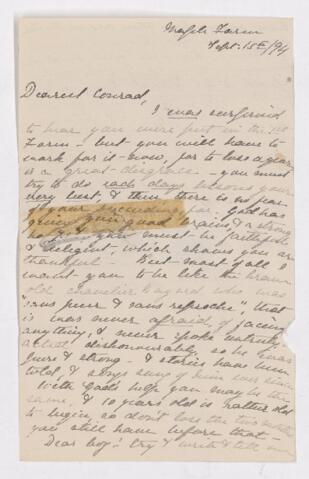 Maple Farm
Sept. 15th/94
Dearest Conrad,
I was surprised
to hear you were put in the 1st
Form – but you will have to
work for it – now, for to lose a year
is a great disgrace – you must
try to do each days lessons your
very best, & then there is no fear
of your succeeding for God has
given you good brains & a strong
body & you must be faithful
& diligent, which shows you are
thankful – But most of all I
want you to be like the brave
old chevalier Bayard who was
"sans peur & sans reproche", that
is was never afraid of facing
anything, & never spoke untruly
acted dishonourably, so he was
pure & strong – & stories have been
told, & songs sung of him ever since
With God's help you may be the
same, & 10 years old is rather old
to begin, so don't lose the two months
you still have before that –
Dear boy! try & write & tell me